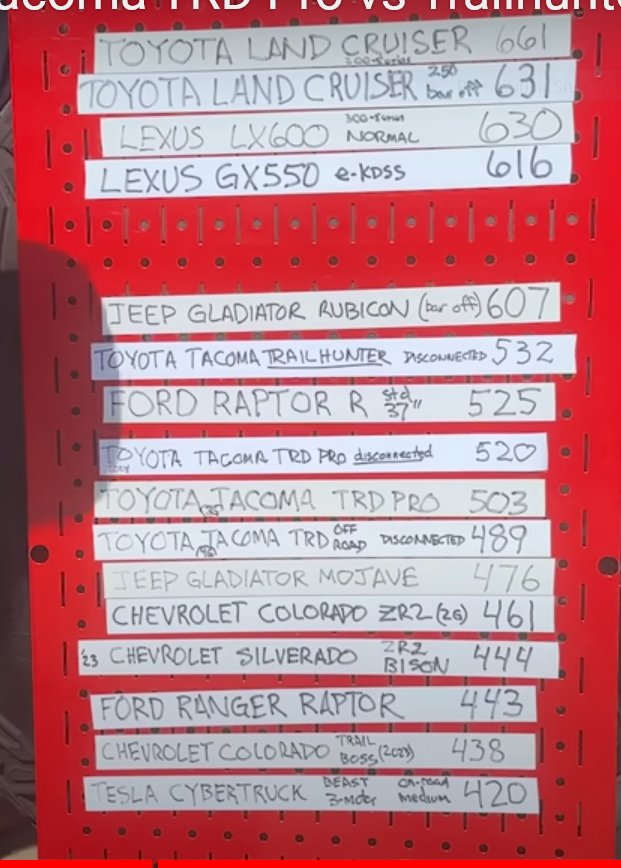 TOYOTA LAND CRUISER 200-series 661
TOYOTA LAND CRUISER 250 bar off 631
LEXUS LX600 300-series NORMAL 630
LEXUS GX550 e-KDSS 616
JEEP GLADIATOR RUBICON (bar off) 607
TOYOTA TACOMA TRAILHUNTER DISCONNECTED 532
FORD RAPTOR R std 37" 525
TOYOTA TACOMA TRD PRO disconnected 520
TOYOTA TACOMA TRD PRO 503
TOYOTA TACOMA TRD OFF ROAD DISCONNECTED 489
JEEP GLADIATOR MOJAVE 476
CHEVROLET COLORADO ZR2 (26) 461
'23 CHEVROLET SILVERADO ZR2 BISON 444
FORD RANGER RAPTOR 443
CHEVROLET COLORADO TRAIL BOSS (2023) 438
TESLA CYBERTRUCK BEAST 3-Motor on-road medium 420